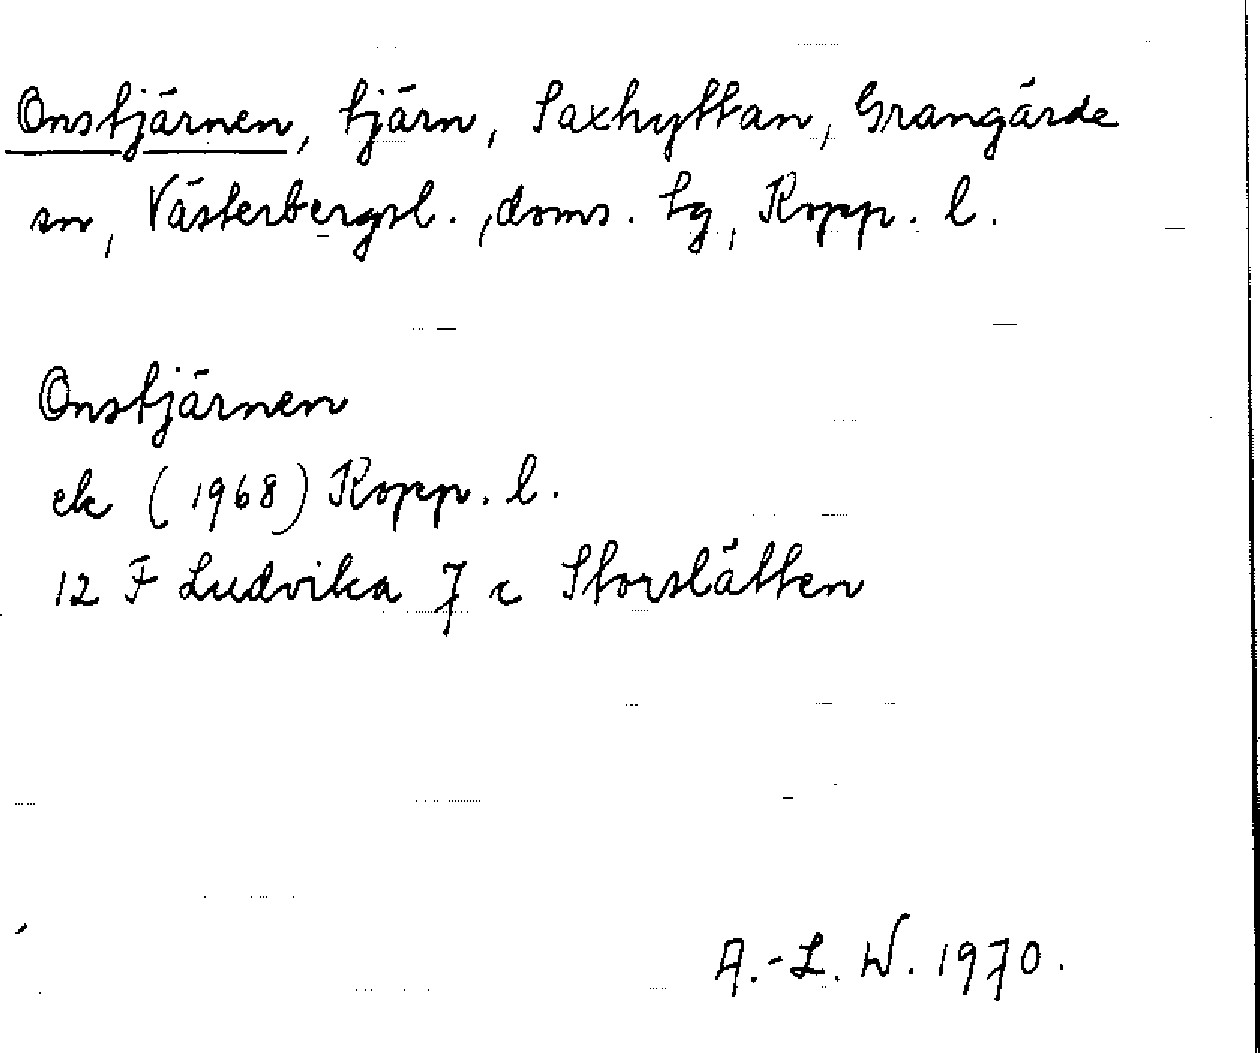 Onstjärnen, tjärn, Saxhyttan, Grangärde
sn, Västerbergsl., doms. tg, Kopp. l.
Onstjärnen
ek (1968) Kopp. l.
12 F Ludvika 7 c Storslätten
A.-L. W. 1970.